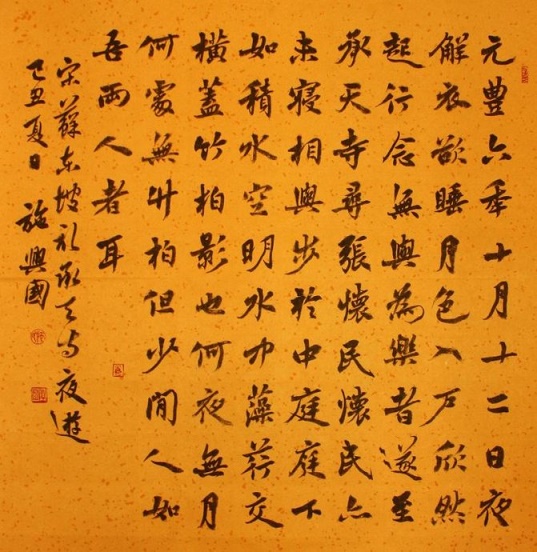 元豐六年十月十二日夜
解衣欲睡月色入戶欣然
起行念無與為樂者遂至
承天寺尋張懷民懷民亦
未寢相與步於中庭庭下
如積水空明水中藻荇交
橫蓋竹柏影也何夜無月
何處無竹柏但少閒人如
吾兩人者耳
宋蘇東坡記承天寺夜遊
己丑夏日 施興國